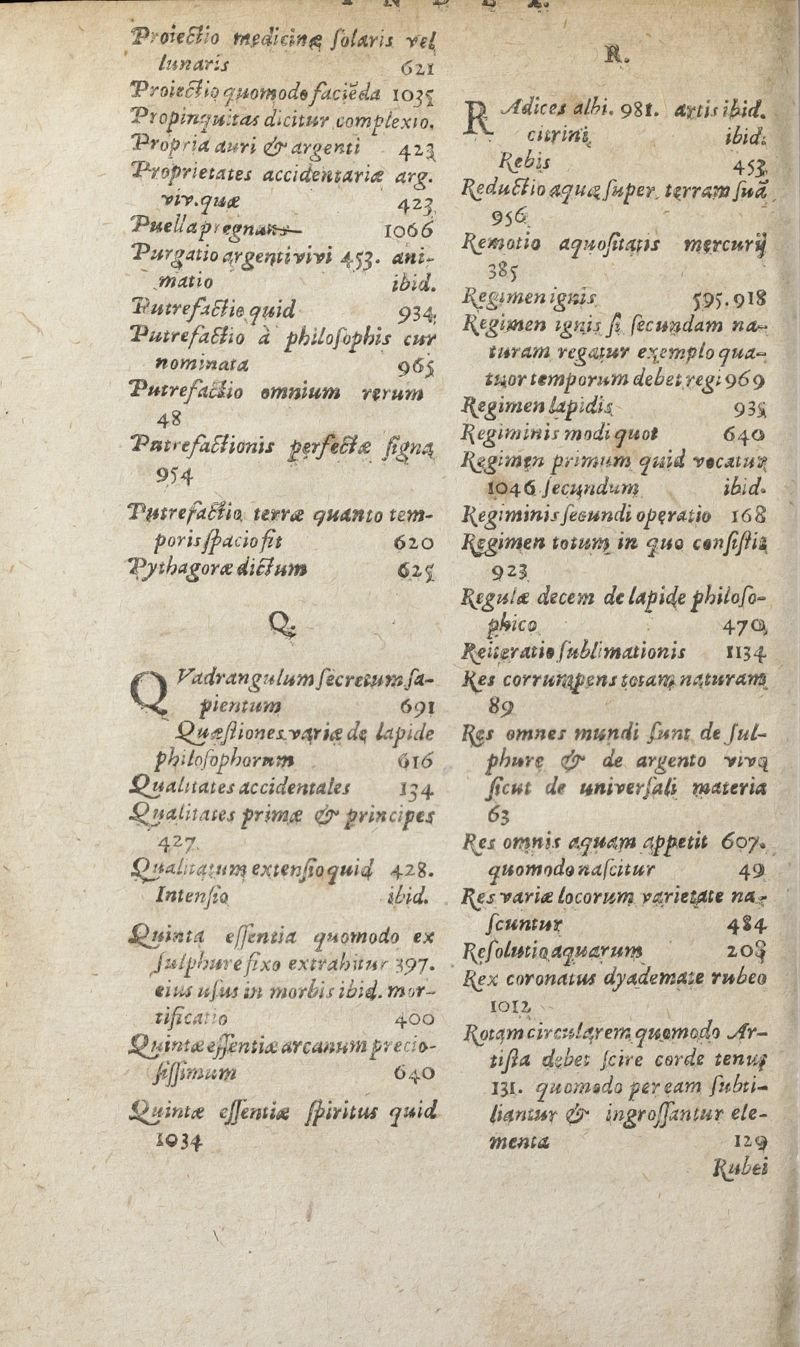 Proiectio medicinæ ſolaris vel
lunaris 621
Proiectio quomodo faciēda 1035
Propinquitas dicitur complexio.
Propria auri & argenti 423
Proprietates accidentariæ arg.
viv. quæ 423
Puella prægnans 1066
Purgatio argenti vivi 453. ani-
matio ibid.
Putrefactio quid 934
Putrefactio à philoſophis cur
nominata 965
Putrefactio omnium rerum
48
Putrefactionis perfectæ ſigna
954
Putrefactio terræ quanto tem-
poris ſpacio fit 620
Pythagoræ dictum 625
Q.
QVadrangulum ſecretum ſa-
pientum 691
Quæſtiones variæ de lapide
philoſophorum 616
Qualitates accidentales 134
Qualitates primæ & principes
427
Qualitatum extenſio quid 428.
Intenſio ibid.
Quinta eſſentia quomodo ex
ſulphure fixo extrahitur 397.
eius uſus in morbis ibid. mor-
tificatio 400
Quintæ eſſentiæ arcanum precio-
ſiſſimum 640
Quintæ eſſentiæ ſpiritus quid
1034
R.
RAdices albi. 981. artis ibid.
citrini ibid.
Rebis 453
Reductio aquæ ſuper terram ſuā
956
Remotio aquoſitatis mercurij
385
Regimen ignis 595. 918
Regimen ignis ſi ſecundam na-
turam regatur exemplo qua-
tuor temporum debet regi 969
Regimen lapidis 935
Regiminis modi quot 640
Regimen primum quid vocatur
1046 ſecundum ibid.
Regiminis ſecundi operatio 168
Regimen totum in quo conſiſtit
923
Regulæ decem de lapide philoſo-
phico 470
Reiteratio ſublimationis 1134
Res corrumpens totam naturam
89
Res omnes mundi ſunt de ſul-
phure & de argento vivo
ſicut de univerſali materia
63
Res omnis aquam appetit 607.
quomodo naſcitur 49
Res variæ locorum varietate na-
ſcuntur 484
Reſolutio aquarum 208
Rex coronatus dyademate rubeo
1012
Rotam circularem quomodo Ar-
tiſta debet ſcire corde tenus
131. quomodo per eam ſubti-
liantur & ingroſſantur ele-
menta 129
Rubei